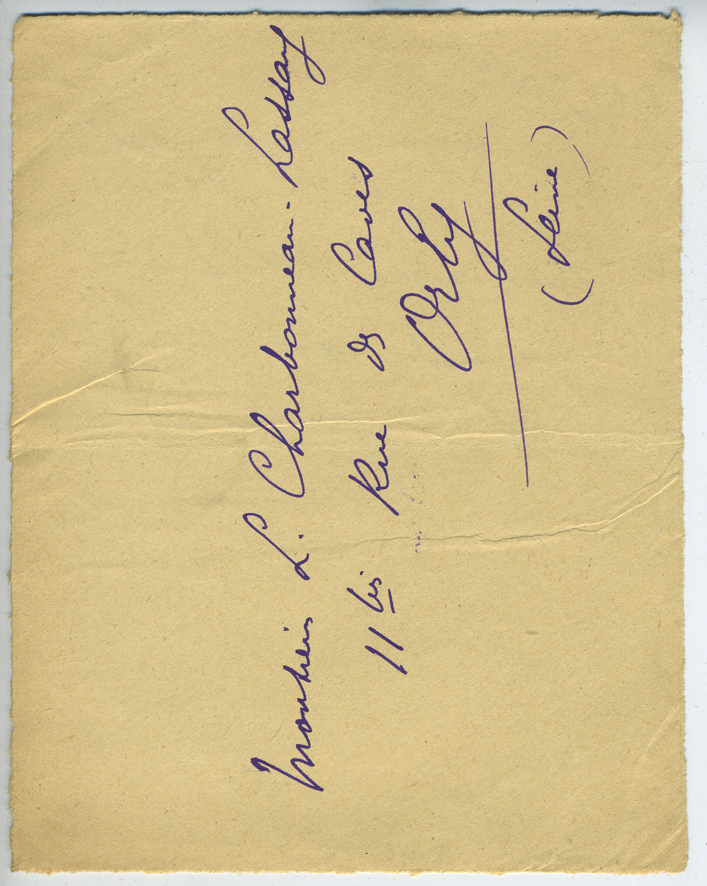 Monsieur L. Charbonneau-Lassay
11 bis Rue des Caves
Orly
(Seine)